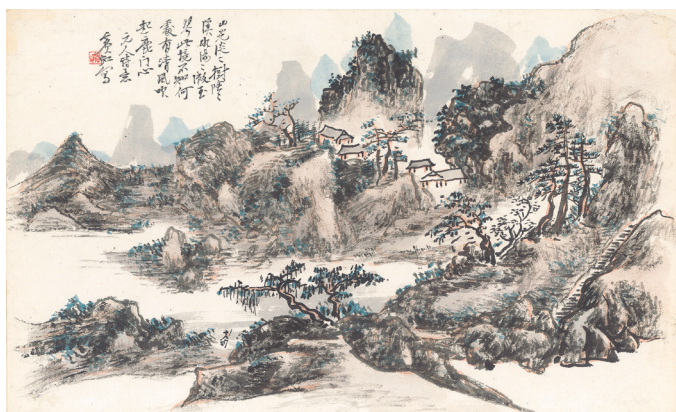 山光淡〻樹陰〻
溪水湯〻漱玉
琴此境不知何
處有清風吹
起鹿門心
元人詩意
賓虹寫